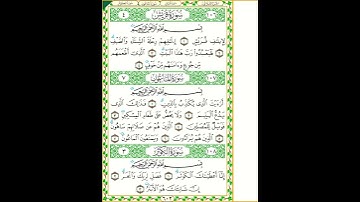 ١٠٦ سورة قريش ٤
بسم الله الرحمن الرحيم
لإيلاف قريش ۝ إيلافهم رحلة الشتاء والصيف
۝ فليعبدوا رب هذا البيت ۝ الذي أطعمهم
من جوع وءامنهم من خوف ۝
١٠٧ سورة الماعون ٧
بسم الله الرحمن الرحيم
أرءيت الذي يكذب بالدين ۝ فذلك الذي
يدع اليتيم ۝ ولا يحض على طعام المسكين ۝
فويل للمصلين ۝ الذين هم عن صلاتهم ساهون
۝ الذين هم يراءون ۝ ويمنعون الماعون ۝
١٠٨ سورة الكوثر ٣
بسم الله الرحمن الرحيم
إنا أعطيناك الكوثر ۝ فصل لربك وانحر ۝
إن شانئك هو الأبتر ۝
٦٠٢